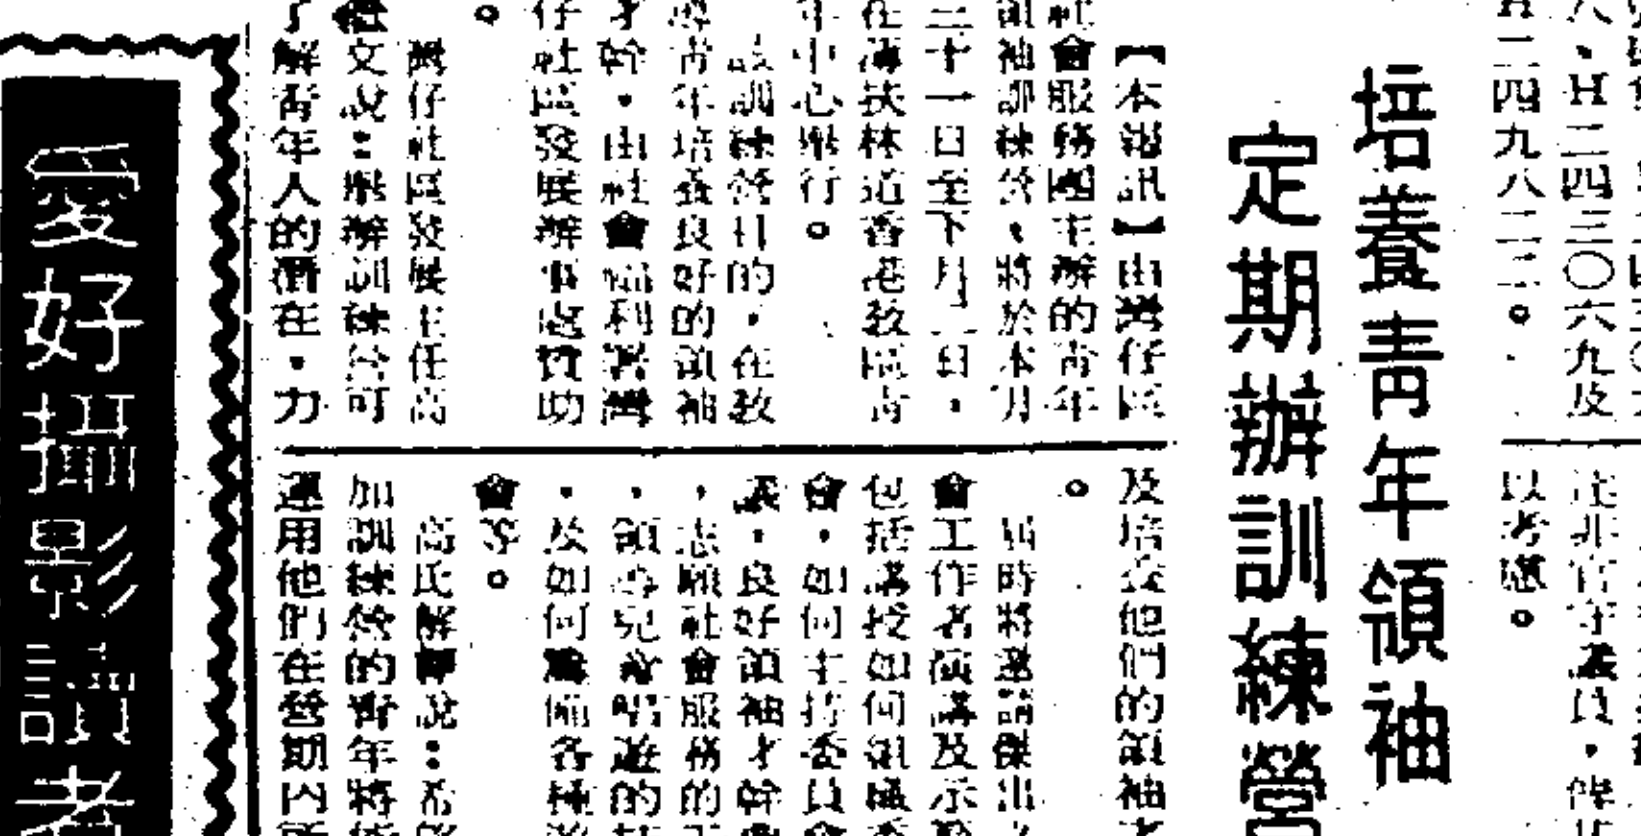 八、H二四三〇六九及
H二四九八二二。
非官守議員，
以考慮。
培養青年領袖
定期辦訓練營
【本報訊】由灣仔區
社會服務團主辦的青年
領袖訓練營、將於本月
三十一日至下月二日，
在薄扶林道香港教區青
年中心舉行。
該訓練營目的，在教
導青年培養良好的領袖
才幹，由社會福利署灣
仔社區發展辦事處贊助
。
灣仔社區發展主任高
文說：舉辦訓練營可
了解青年人的潛在，力
及培養他們的領袖才
。
屆時將邀請傑出
會工作者演講及示範
包括講授如何組織委
會，如何主持委員會
議，良好領袖才幹
，志願社會服務的工
，領導兒童唱遊的技
，及如何籌備各種遊
會等。
高氏解釋說：希望
加訓練營的青年將能
運用他們在營期內所
愛好攝影讀者